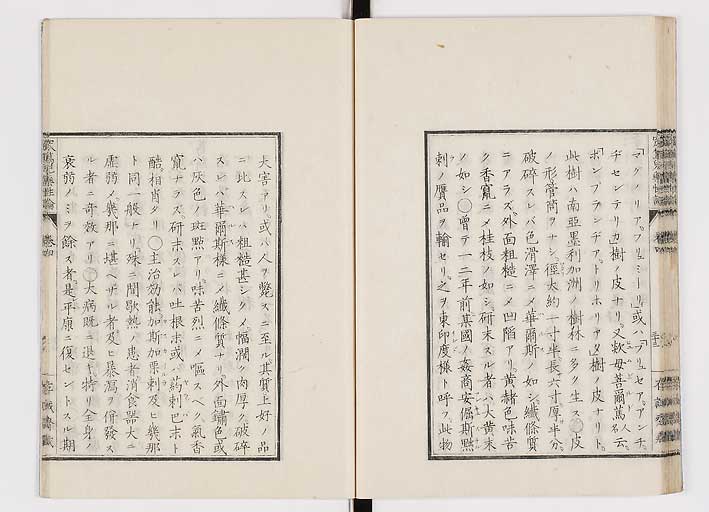 「マグノリア。フリュミーリ」或ハ「テリュセアアンチ。
ヂセンテリカ」樹ノ皮ナリ。又歇母菩爾萬人名云。
「ボンプランヂア。トリホリアタ」樹ノ皮ナリト。
此樹ハ南亞墨利加洲ノ樹林ニ多ク生ス〇皮
ノ形管筒ヲナシ。徑大約一寸半。長六寸。厚半分
破碎スレバ色滑澤ニメ華爾斯ノ如シ。纎條質
ニアラズ。外面粗糙ニメ凹陷アリ。黄赭色味苦
ク香竄ニメ桂枝ノ如シ。研末スル者ハ大黄末
ノ如シ〇曾テ一二年前某國ノ奸商安倔斯黙
刺ノ贋品ヲ輸セリ。之ヲ東印度様ト呼フ。此物
大害アリ。或ハ人ヲ斃スニ至ル。其質上好ノ品
ニ比スレハ粗糙甚シク。幅濶ク肉厚ク。破碎
スレバ華爾斯様ニメ纎條質ナリ。外面鏽色或
ハ灰色ノ斑點アリ。味苦烈ニメ嘔スベク氣香
竄ナラズ。研末スレバ吐根末或ハ葯刺巴末ト
酷相肖タリ〇主治効能加斯加栗刺及ヒ幾那
ト同一般ナリ。殊ニ間歇熱ノ患者消食器大ニ
虚弱ノ幾那ニ堪ヘザル者及ヒ暴瀉ヲ併發ス
ル者ニ奇效アリ〇大病既ニ退キ特リ全身ノ
衰弱ノミヲ餘ス者。是平康ニ復セントスル期